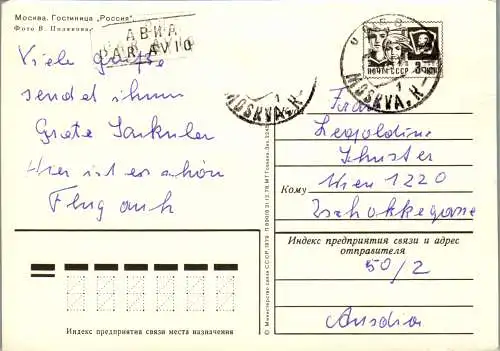 Москва. Гостиница „Россия".
Фото В. Полякова
АВИА
PAR AVION
Viele Grüße
sendet ihnen
Grete
Hier ist es schön
Flug auch
ПОЧТА СССР
MOSKVA
MOSKVA
Frau
Leopoldine
Schuster
Кому Wien 1220
Zschokkegasse
Индекс предприятия связи и адрес
отправителя
50/2
Austria
Индекс предприятия связи места назначения
© Министерство связи СССР, 1979